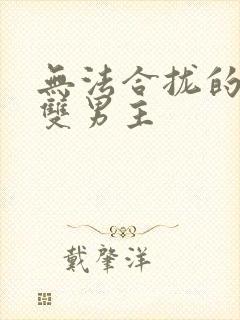 無法合拢的
雙男主
戴肇洋